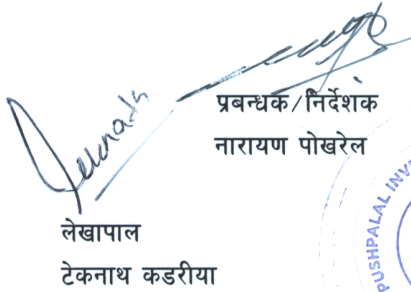 Teknath
प्रबन्धक/निर्देशक
नारायण पोखरेल
लेखापाल
टेकनाथ कडरीया
PUSHPALAL INV